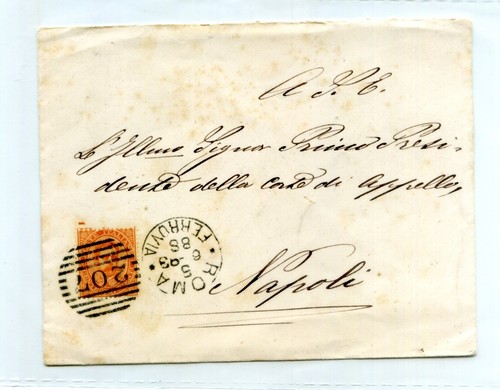 A S. E.
L'Illmo Signor Primo Presi-
dente della Corte di Appello,
Napoli
ROMA
FERROVIA
5
93
8S
207